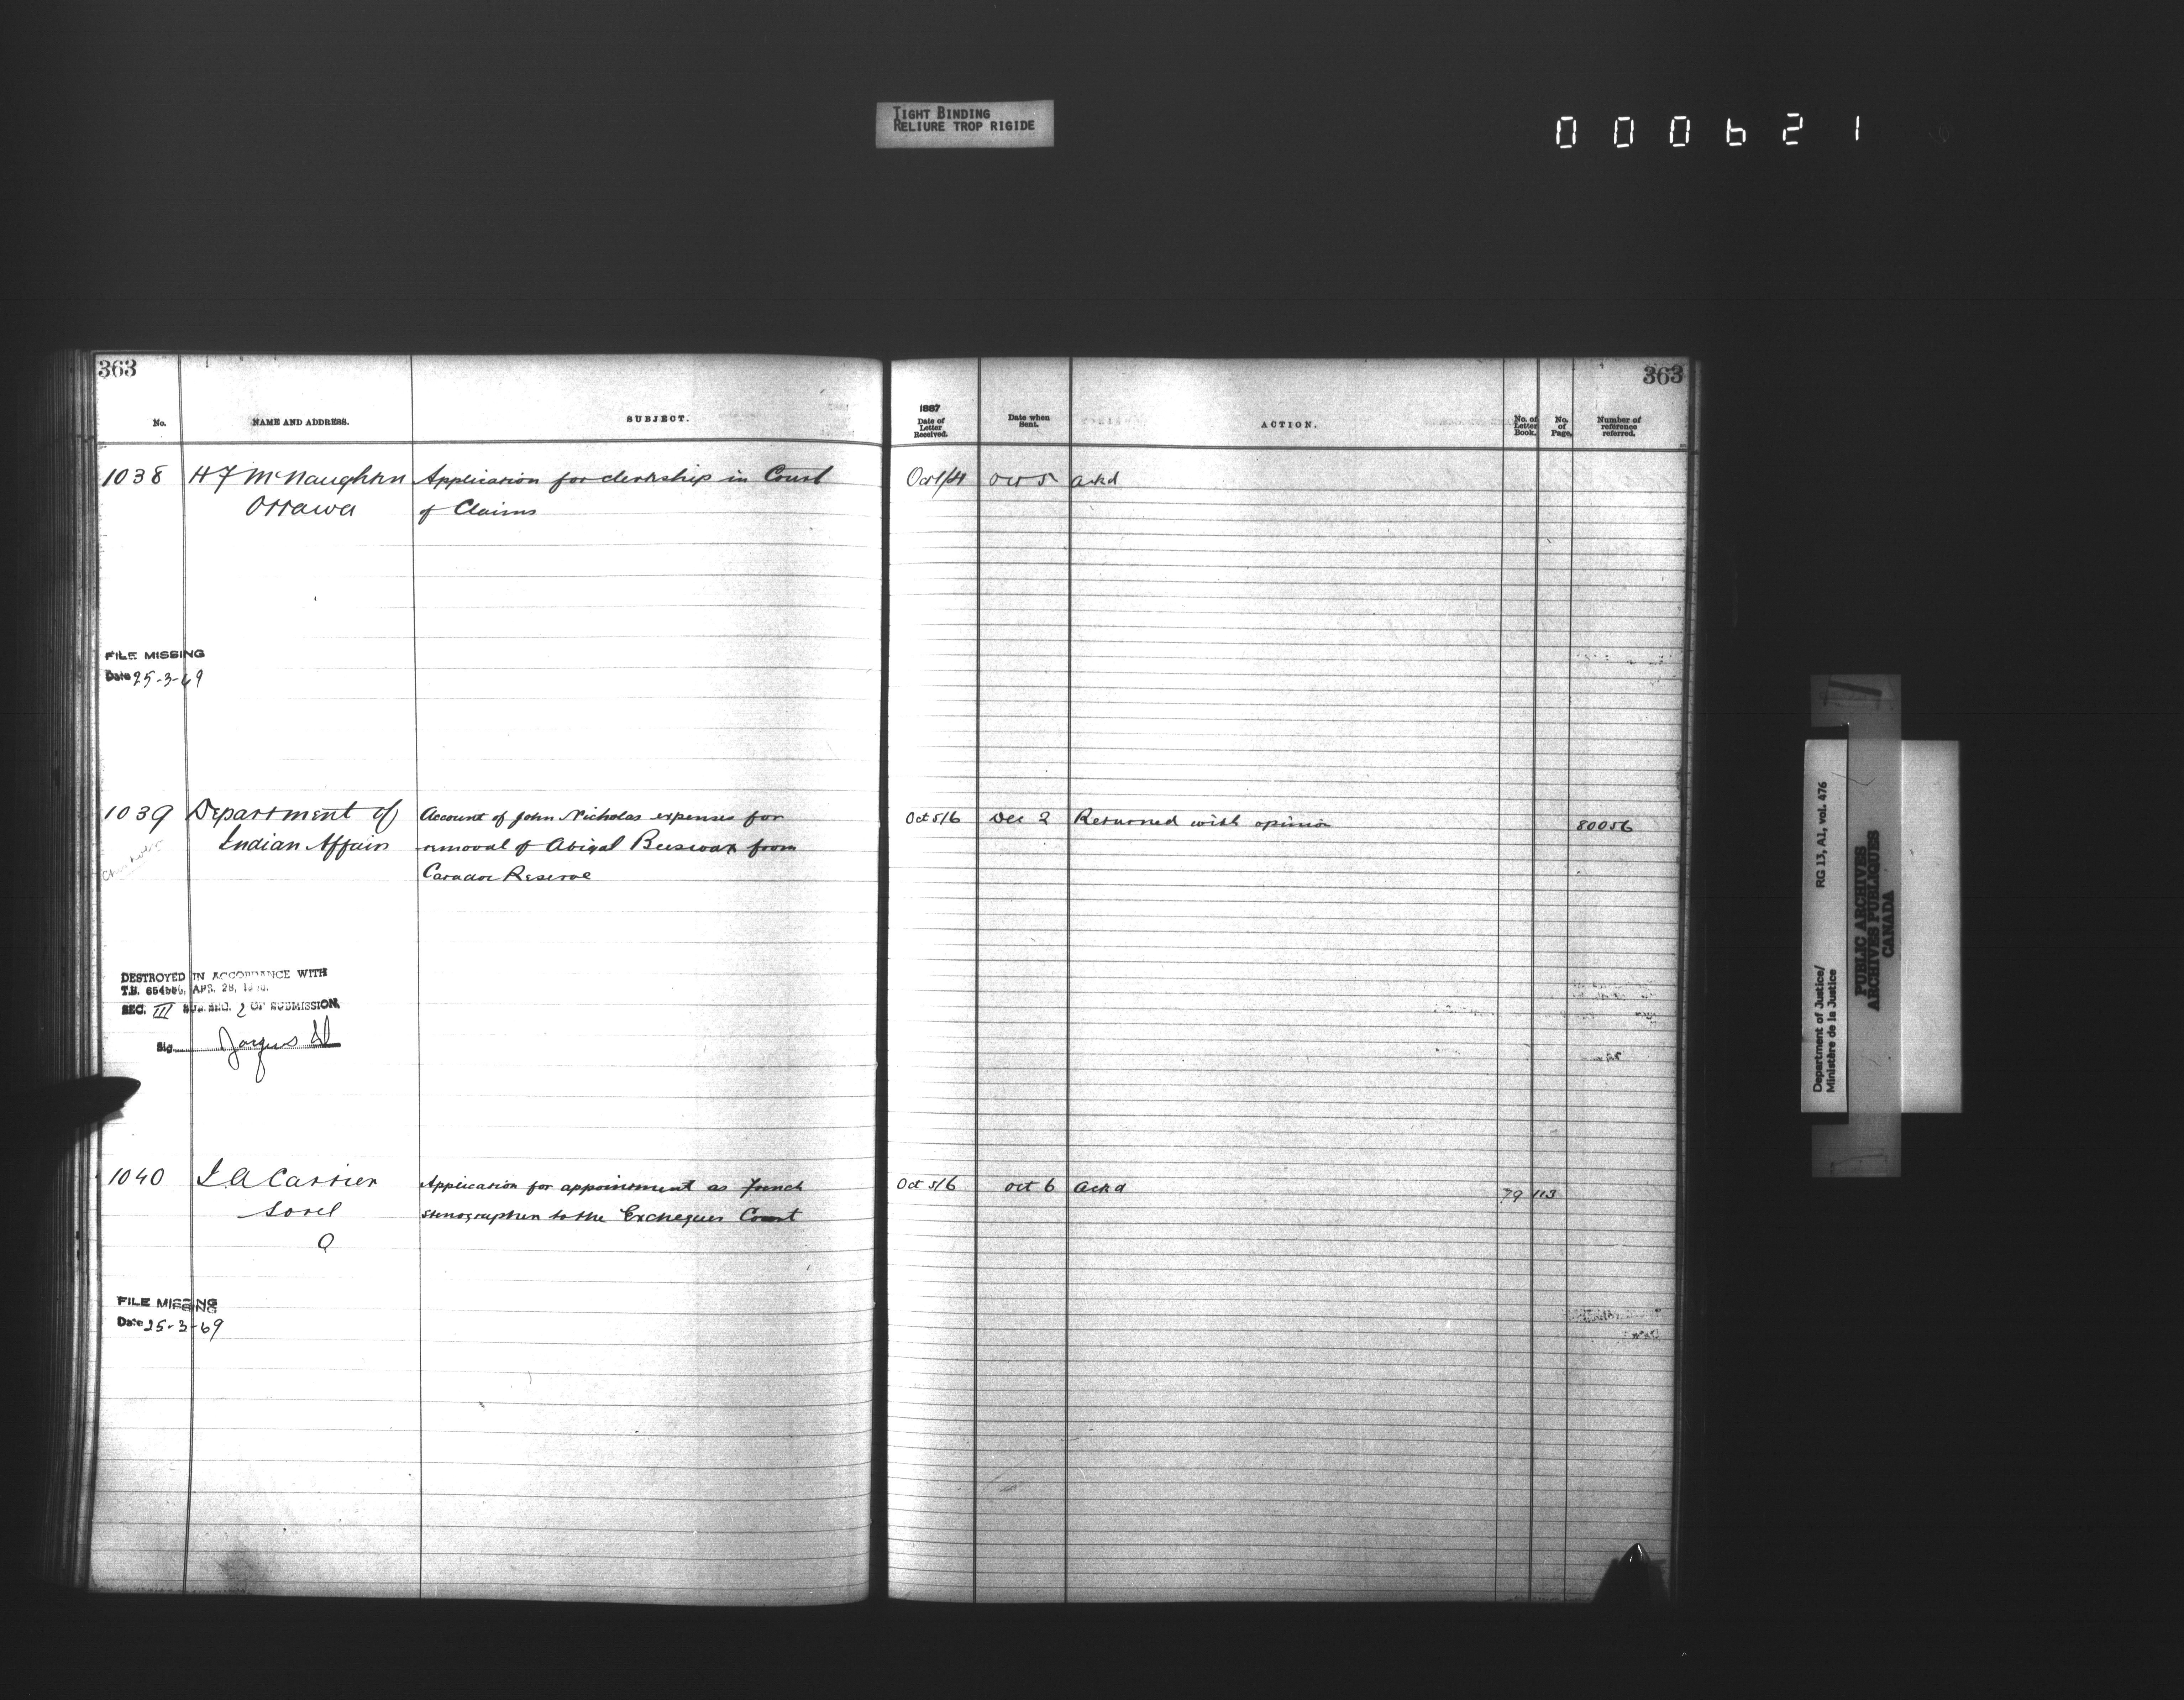 TIGHT BINDING
RELIURE TROP RIGIDE
000621
363
No.
NAME AND ADDRESS.
SUBJECT.
1038 H F McNaughton Application for clerkship in Court
Ottawa of Claims
FILE MISSING
Date 25-3-69
1039 Department of Account of John Nicholas expenses for
Indian Affairs removal of Abigal Beeswax from
Caradoc Reserve
DESTROYED IN ACCORDANCE WITH
T.B. APR. 28,
SEC. III SUB. SEC. 2 OF SUBMISSION.
Sig.
1040 Carrier Application for appointment as French
Sorel stenographer to the Exchequer Court
Q
FILE MISSING
Date 25-3-69
363
1887
Date of
Letter
Received.
Date when
Sent.
ACTION.
No. of
Letter
Book.
No.
of
Page.
Number of
reference
referred.
Oct 1/4 Oct 5 ackd
Oct 5/6 Dec 2 Returned with opinion 80056
Oct 5/6 Oct 6 Ackd 79 113
Department of Justice/ RG 13, A1, vol. 476
Ministère de la Justice
PUBLIC ARCHIVES
ARCHIVES PUBLIQUES
CANADA